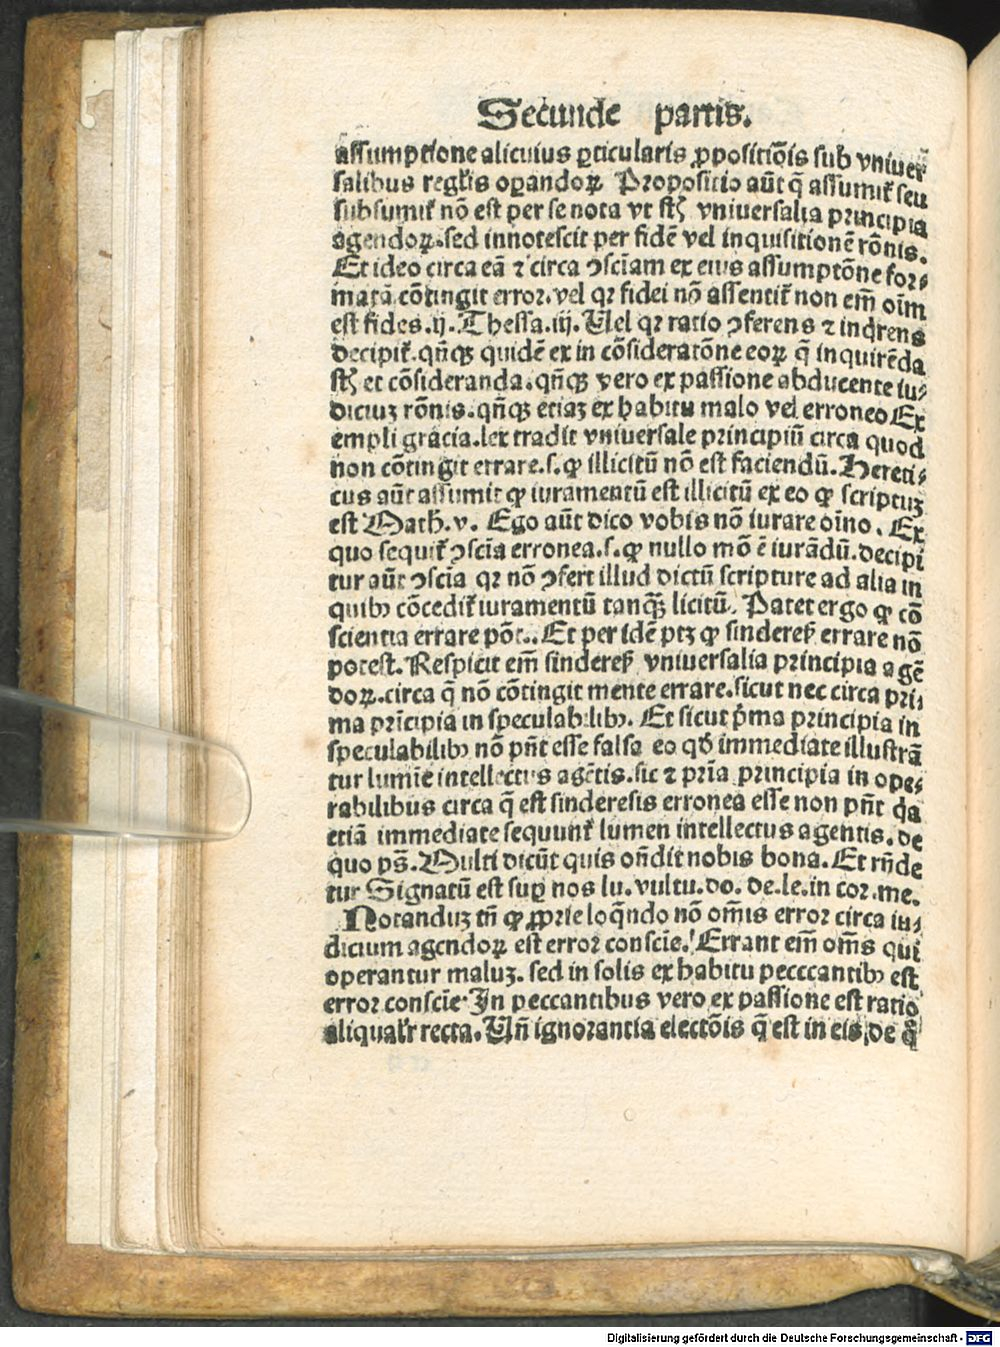 Secunde partis.
assumptione alicuius ꝑticularis ꝓpositiõis sub vniuer̃
salibus regłis oꝑandoꝝ Propositio aũt q̃ assumit᷑ seu
subsumit᷑ nõ est per se nota vt sũt vniuersalia principia
agendoꝝ. sed innotescit per fidẽ vel inquisitionẽ rõnis.
Et ideo circa eã ⁊ circa ↄsciam ex eius assumptõne for⸗
matã cõtingit error. vel qꝛ fidei nõ assentit᷑ non em̃ oĩm
est fides. ij. Thessa. iij. Uel qꝛ ratio ↄferens ⁊ inq̇rens
decipit᷑. qñqꝫ quidẽ ex in cõsideratõne eoꝝ q̃ inquirẽda
sũt et cõsideranda. qñqꝫ vero ex passione abducente iu⸗
diciuꝫ rõnis. qñqꝫ etiaꝫ ex habitu malo vel erroneo Ex
empli gracia. lex tradit vniuersale principiũ circa quod
non cõtingit errare. s. ꝙ illicitũ nõ est faciendũ. Hereti⸗
cus aũt assumit ꝙ iuramentũ est illicitũ ex eo ꝙ scriptuꝫ
est Math. v. Ego aũt dico vobis nõ iurare oĩno. Ex
quo sequit᷑ ↄscĩa erronea. s. ꝙ nullo mõ ẽ iurãdũ. decipi
tur aũt ↄscĩa qꝛ nõ ↄfert illud dictũ scripture ad alia in
quibꝰ cõcedit᷑ iuramentũ tanqꝫ̃ licitũ. Patet ergo ꝙ cõ
scientia errare põt.. Et per idẽ ptꝫ ꝙ sindereẜ errare nõ
potest. Respicit em̃ sindereẜ vniuersalia principia agẽ
doꝝ. circa q̃ nõ cõtingit mente errare. sicut nec circa pri⸗
ma prĩcipia in speculabilibꝰ. Et sicut p̃ma principia in
speculabilibꝰ nõ pñt esse falsa eo qð immediate illustrã
tur lumĩe intellectus agẽtis. sic ⁊ prĩa principia in ope⸗
rabilibus circa q̃ est sinderesis erronea esse non pñt q̇a
etiã immediate sequunt᷑ lumen intellectus agentis. de
quo pš. Multi dicũt quis oñdit nobis bona. Et rñde
tur Signatũ est suꝑ nos lu. vultu. do. de. le. in cor. me.
Notanduꝫ tñ ꝙ ꝓprie loq̃ndo nõ om̃is error circa iu⸗
dicium agendoꝝ est error conscĩe. Errant em̃ om̃s qui
operantur maluꝫ. sed in solis ex habitu pecccantibꝰ est
error conscĩe. In peccantibus vero ex passione est ratio
aliqual'r recta. Uñ ignorantia electõis q̃ est in eis, de q̃
Digitalisierung gefördert durch die Deutsche Forschungsgemeinschaft - DFG